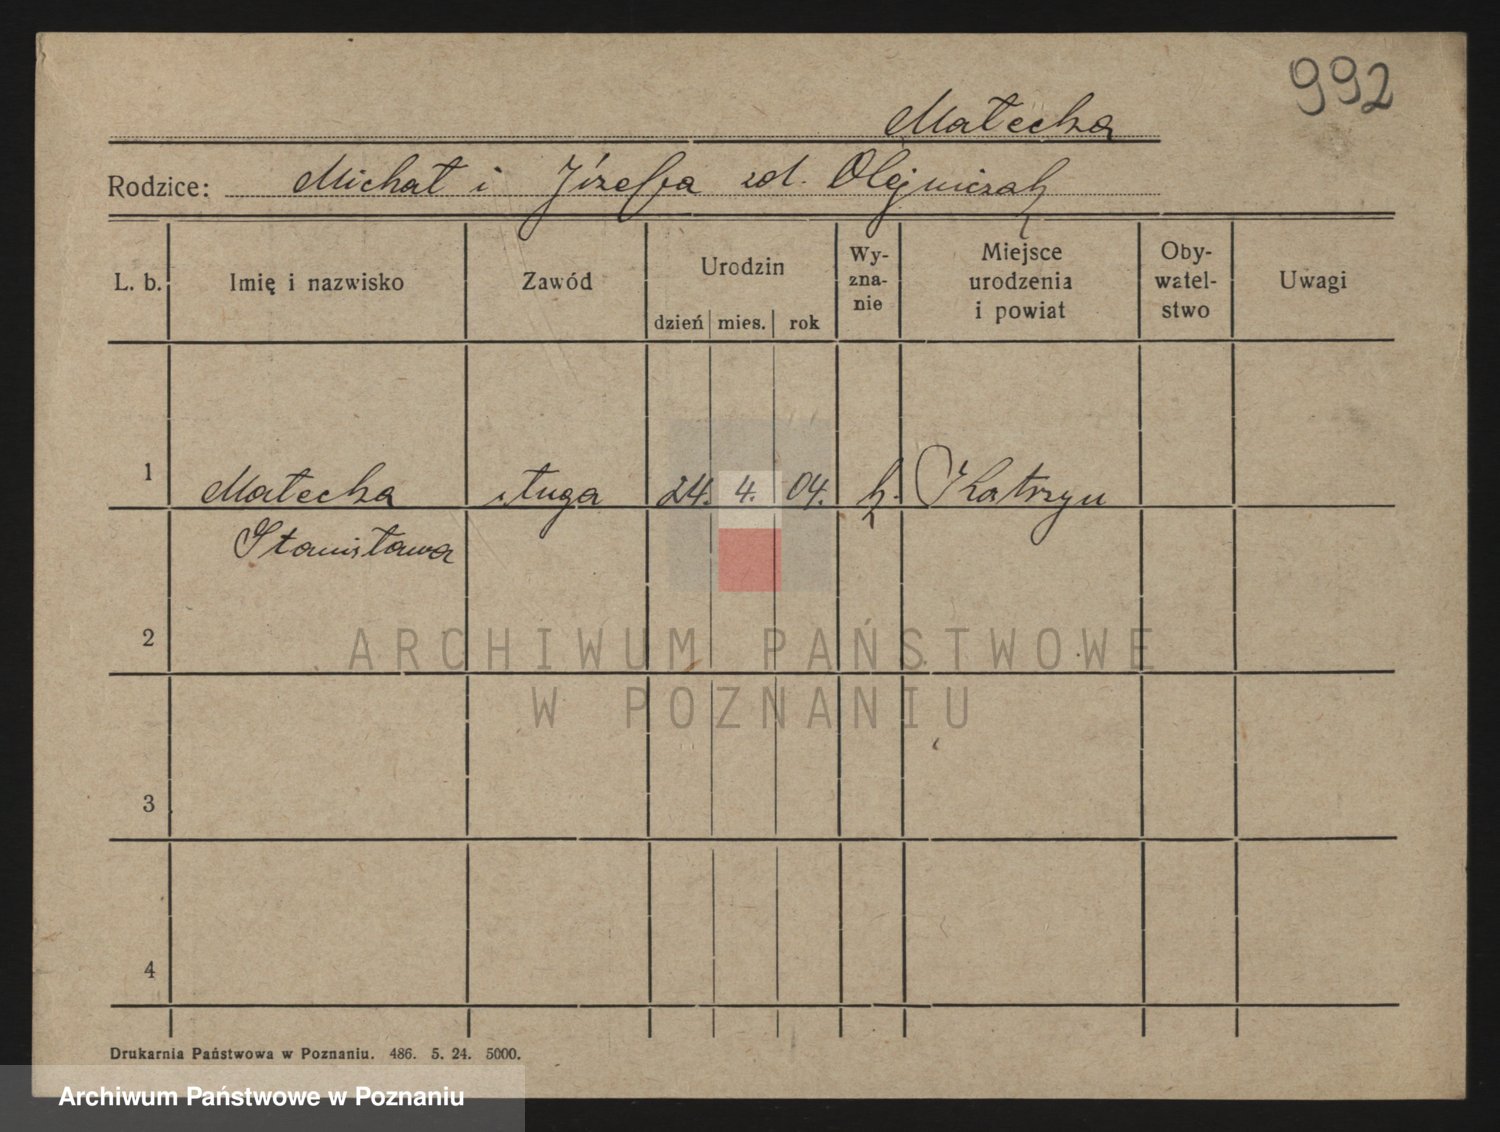 992
Małecka
Rodzice: Michał i Józefa zd. Olejniczak
L. b. Imię i nazwisko Zawód Urodzin dzień mies. rok Wy-zna-nie Miejsce urodzenia i powiat Oby-watel-stwo Uwagi
1 Małecka sługa 24. 4. 04. k. Katrzyn
Stanisława
2
ARCHIWUM PAŃSTWOWE
W POZNANIU
3
4
Drukarnia Państwowa w Poznaniu. 486. 5. 24. 5000.
Archiwum Państwowe w Poznaniu